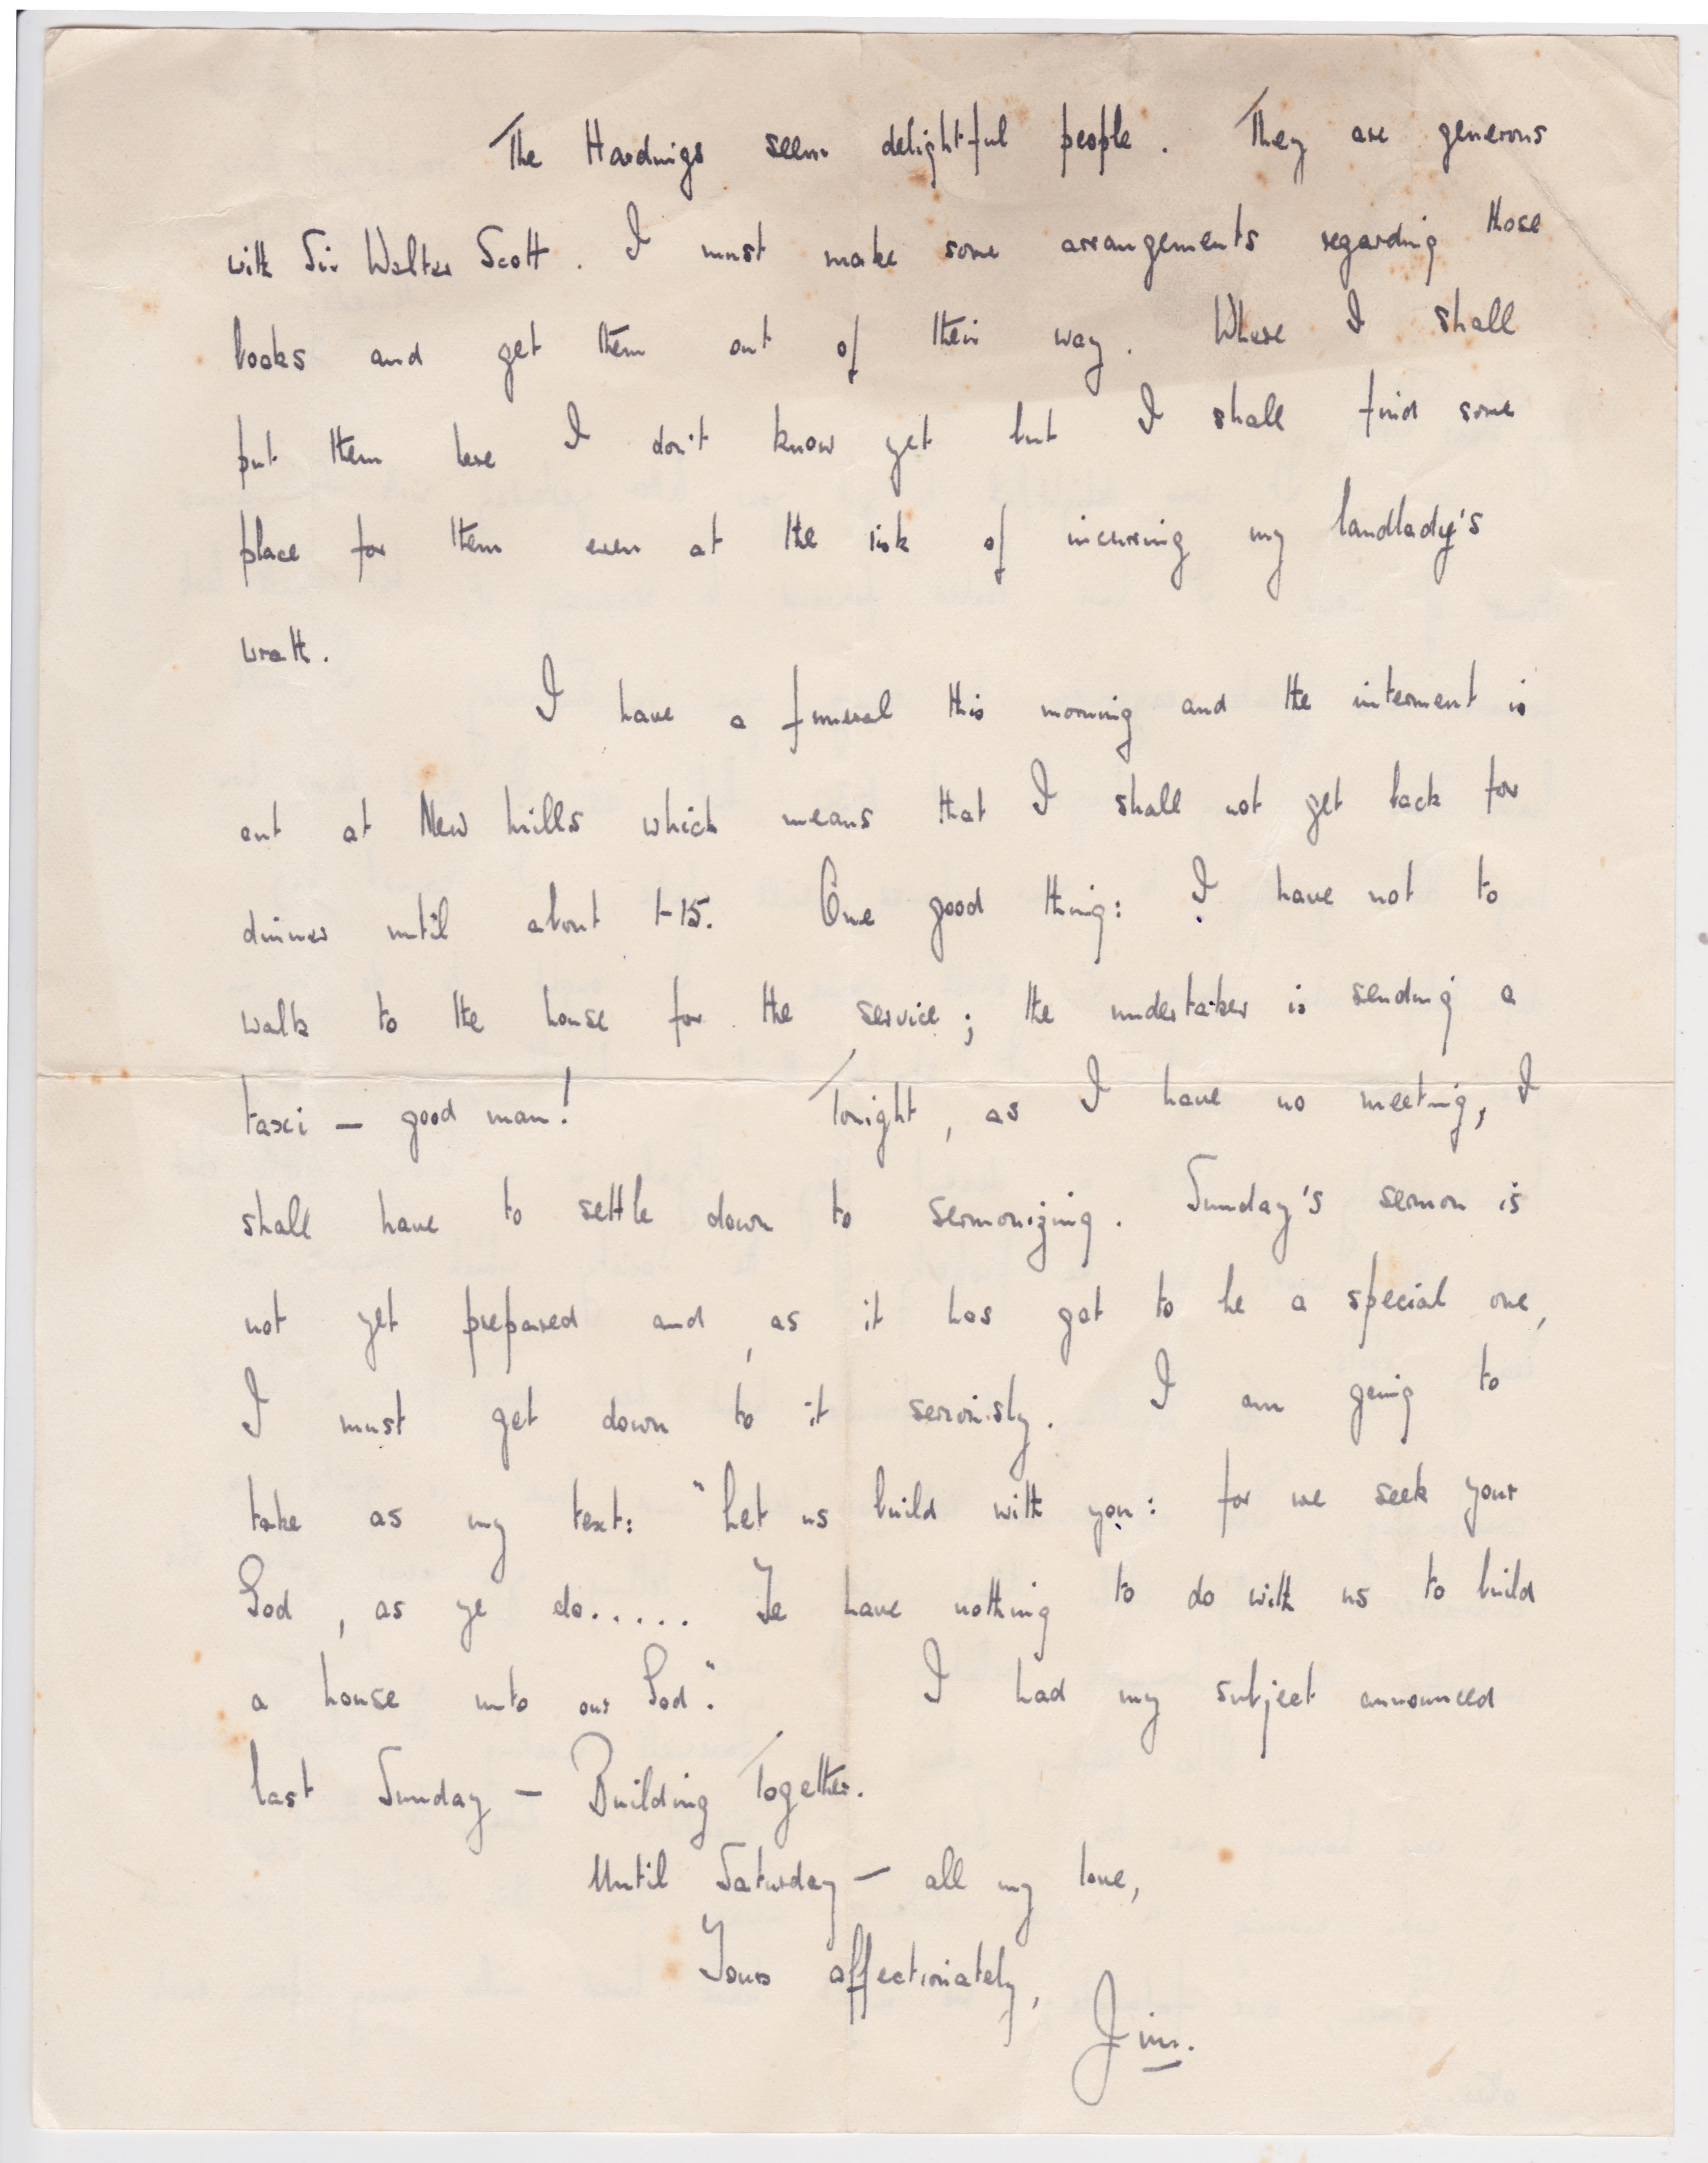 The Hardings seem delightful people. They are generous
with Sir Walter Scott. I must make some arrangements regarding those
books and get them out of their way. Where I shall
put them here I don't know yet but I shall find some
place for them even at the risk of incurring my landlady's
wrath.
I have a funeral this morning and the interment is
out at New Mills which means that I shall not get back for
dinner until about 1-15. One good thing: I have not to
walk to the house for the service; the undertaker is sending a
taxi — good man! Tonight, as I have no meeting, I
shall have to settle down to sermonizing. Sunday's sermon is
not yet prepared and, as it has got to be a special one,
I must get down to it seriously. I am going to
take as my text: "Let us build with you: for we seek your
God, as ye do..... Ye have nothing to do with us to build
a house unto our God". I had my subject announced
last Sunday — Building Together.
Until Saturday — all my love,
Yours affectionately,
Jim.